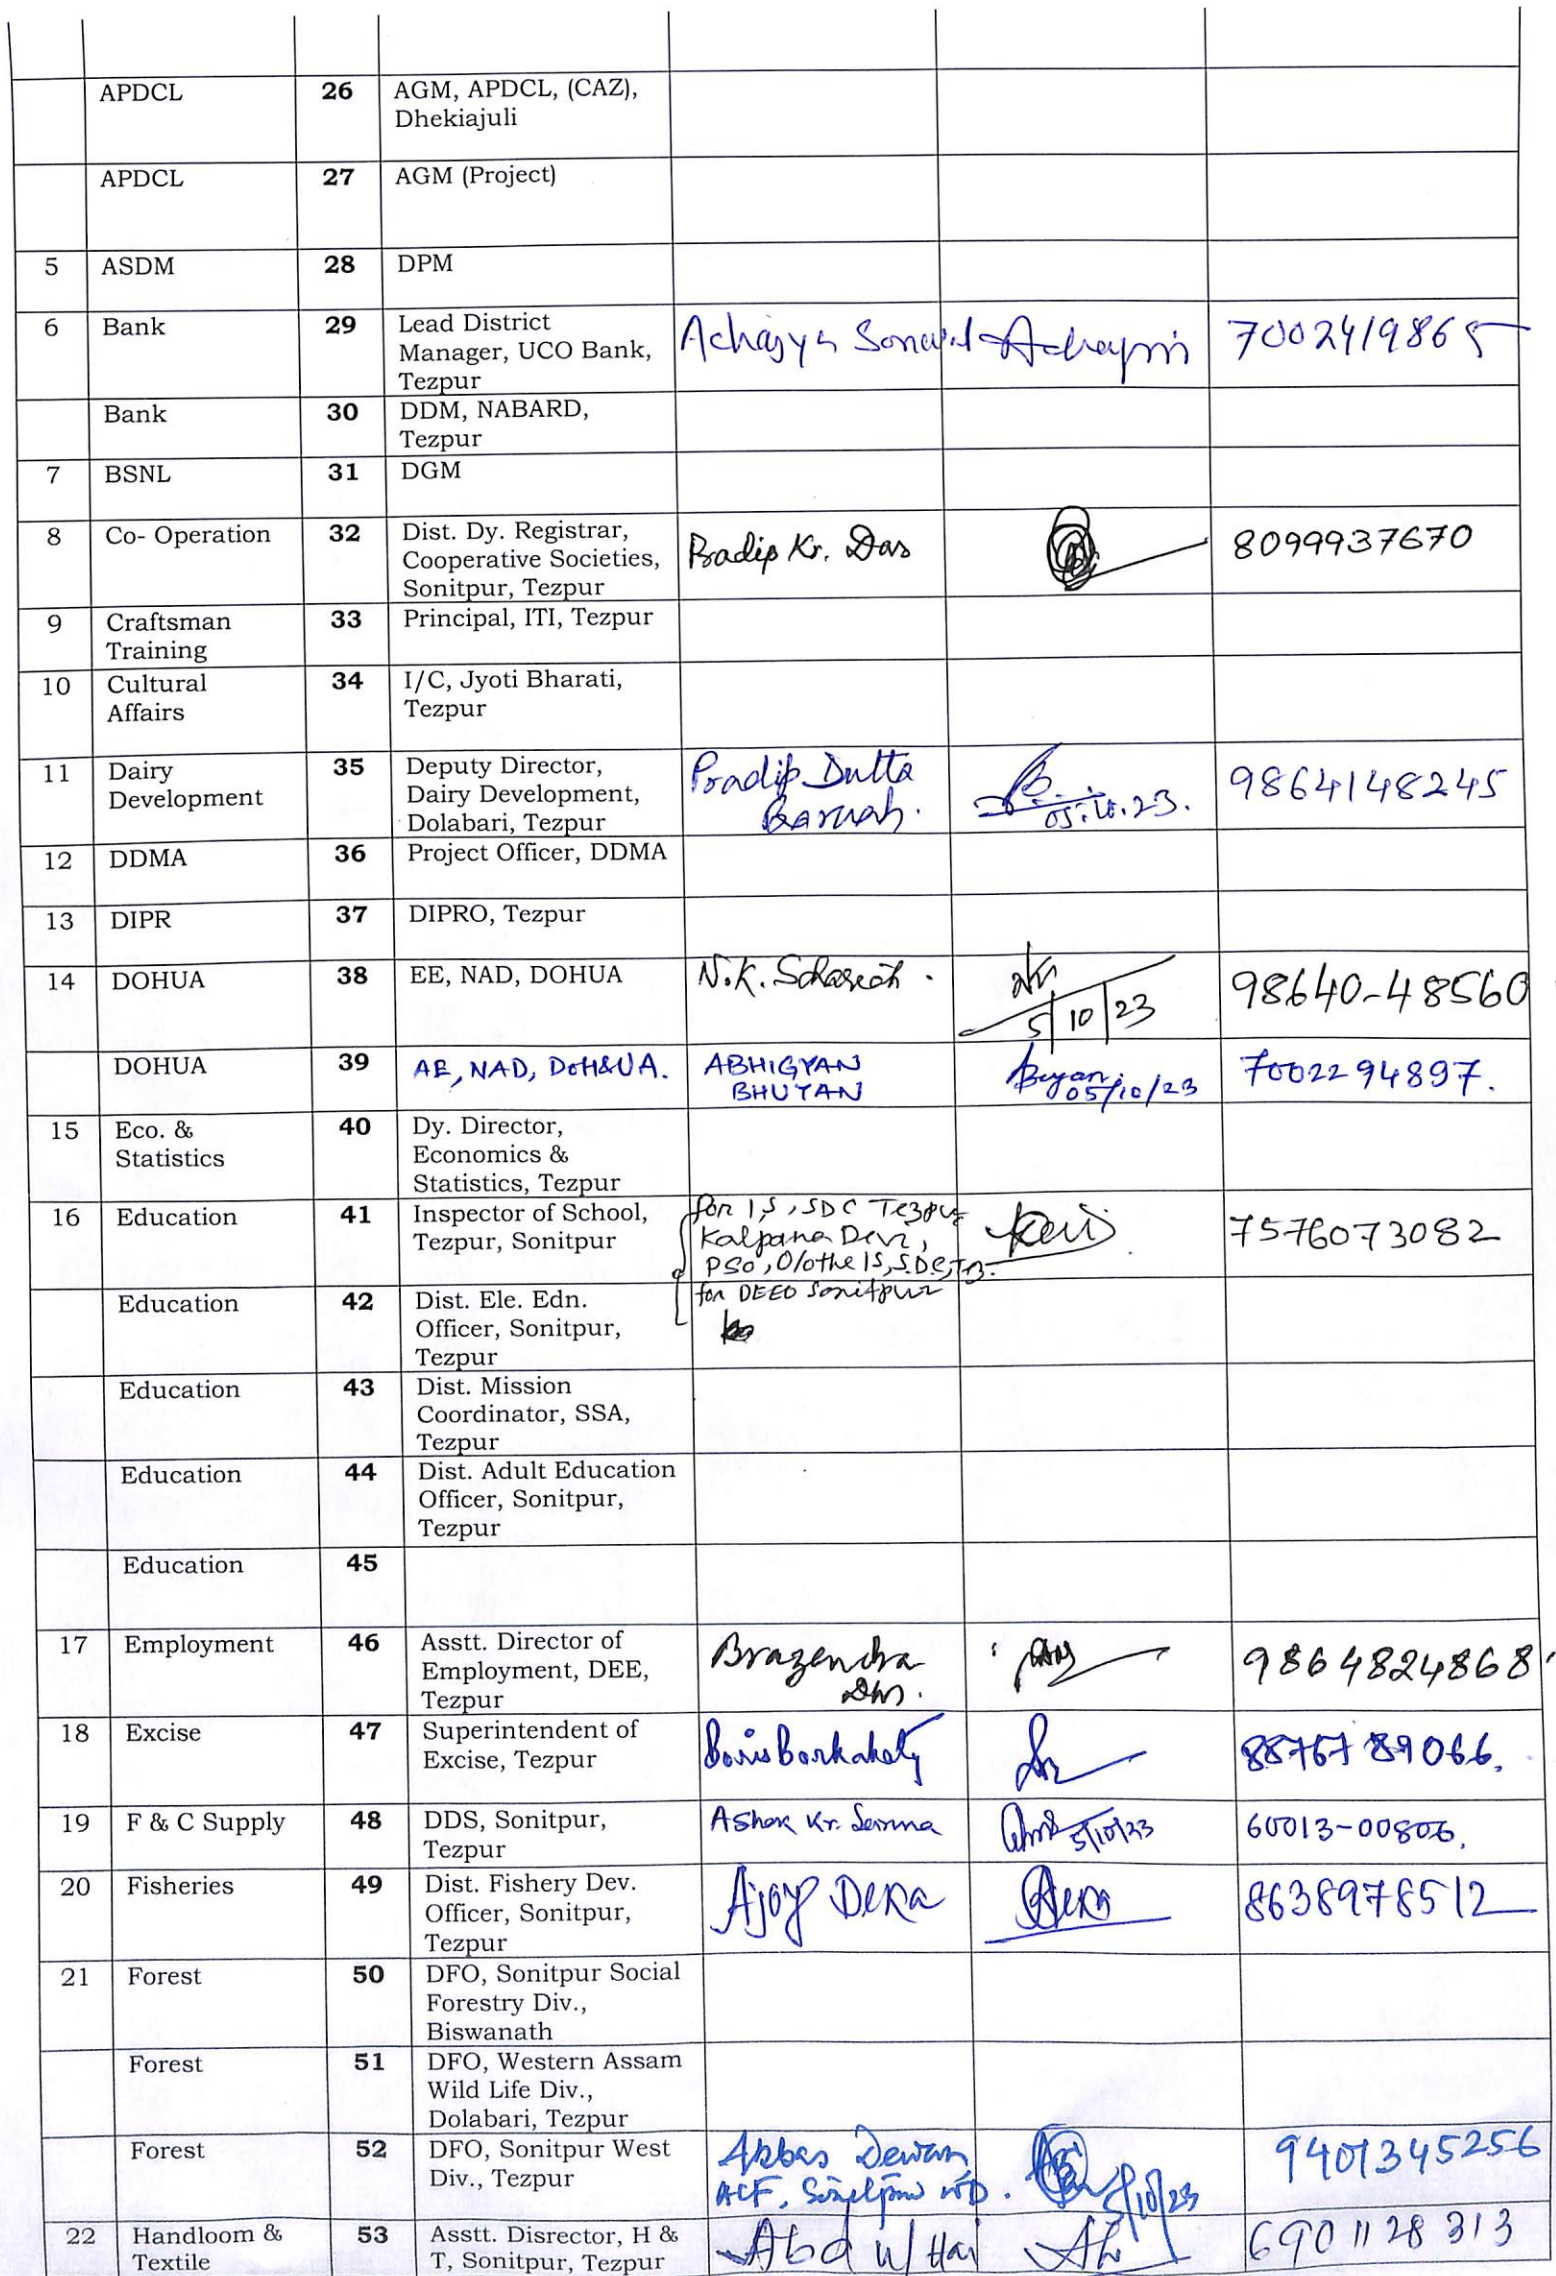 APDCL 26 AGM, APDCL, (CAZ),
Dhekiajuli
APDCL 27 AGM (Project)
5 ASDM 28 DPM
6 Bank 29 Lead District
Manager, UCO Bank,
Tezpur
7002419865
Bank 30 DDM, NABARD,
Tezpur
7 BSNL 31 DGM
8 Co- Operation 32 Dist. Dy. Registrar,
Cooperative Societies,
Sonitpur, Tezpur
Pradip Kr. Das 8099937670
9 Craftsman
Training
33 Principal, ITI, Tezpur
10 Cultural
Affairs
34 I/C, Jyoti Bharati,
Tezpur
11 Dairy
Development
35 Deputy Director,
Dairy Development,
Dolabari, Tezpur
Pradip Dutta
Baruah.
05.10.23.
9864148245
12 DDMA 36 Project Officer, DDMA
13 DIPR 37 DIPRO, Tezpur
14 DOHUA 38 EE, NAD, DOHUA N.K. 5/10/23 98640-48560
DOHUA 39 AE, NAD, DoH&UA. ABHIGYAN
BHUYAN
05/10/23 7002294897.
15 Eco. &
Statistics
40 Dy. Director,
Economics &
Statistics, Tezpur
16 Education 41 Inspector of School,
Tezpur, Sonitpur
for IS, SDC Tezpur
Kalpana Devi,
PSO, O/o the IS, SDC, Tez.
7576073082
for DEEO Sonitpur
Education 42 Dist. Ele. Edn.
Officer, Sonitpur,
Tezpur
Education 43 Dist. Mission
Coordinator, SSA,
Tezpur
Education 44 Dist. Adult Education
Officer, Sonitpur,
Tezpur
Education 45
17 Employment 46 Asstt. Director of
Employment, DEE,
Tezpur
Brazendra
9864824868
18 Excise 47 Superintendent of
Excise, Tezpur
8876789066.
19 F & C Supply 48 DDS, Sonitpur,
Tezpur
Ashok Kr. 5/10/23 60013-00806.
20 Fisheries 49 Dist. Fishery Dev.
Officer, Sonitpur,
Tezpur
Ajoy Deka Deka 8638978512
21 Forest 50 DFO, Sonitpur Social
Forestry Div.,
Biswanath
Forest 51 DFO, Western Assam
Wild Life Div.,
Dolabari, Tezpur
Forest 52 DFO, Sonitpur West
Div., Tezpur
Abbas Dewan
ACF,
5/10/23
9401345256
22 Handloom &
Textile
53 Asstt. Disrector, H &
T, Sonitpur, Tezpur
Abdul Hai 6901128313